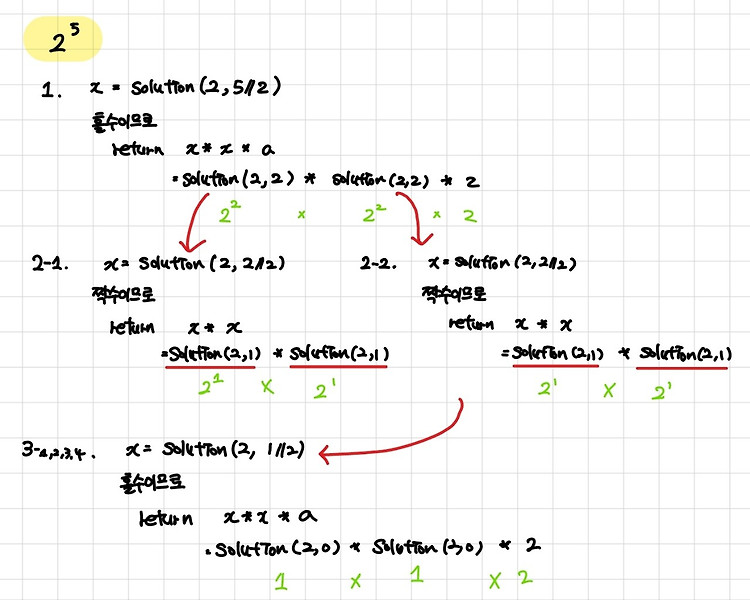 2⁵
1. x = solution(2, 5//2)
홀수이므로
return x * x * a
= solution(2, 2) * solution(2,2) * 2
2² × 2² × 2
2-1. x = solution(2, 2//2)
짝수이므로
return x * x
= solution(2,1) * solution(2,1)
2¹ × 2¹
2-2. x = solution(2, 2//2)
짝수이므로
return x * x
= solution(2,1) * solution(2,1)
2¹ × 2¹
3-1,2,3,4. x = solution(2, 1//2)
홀수이므로
return x * x * a
= solution(2,0) * solution(2,0) * 2
1 × 1 × 2